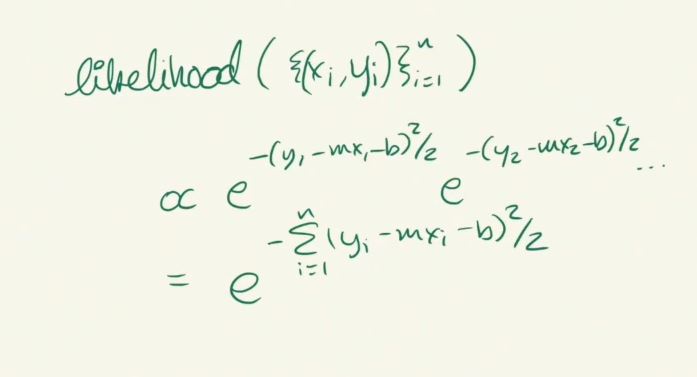 likelihood ( {(xᵢ, yᵢ)}ⁿᵢ₌₁ )
∝ e^{-(y₁ - mx₁ - b)²/2} e^{-(y₂ - mx₂ - b)²/2} ...
= e^{-∑ⁿᵢ₌₁ (yᵢ - mxᵢ - b)²/2}